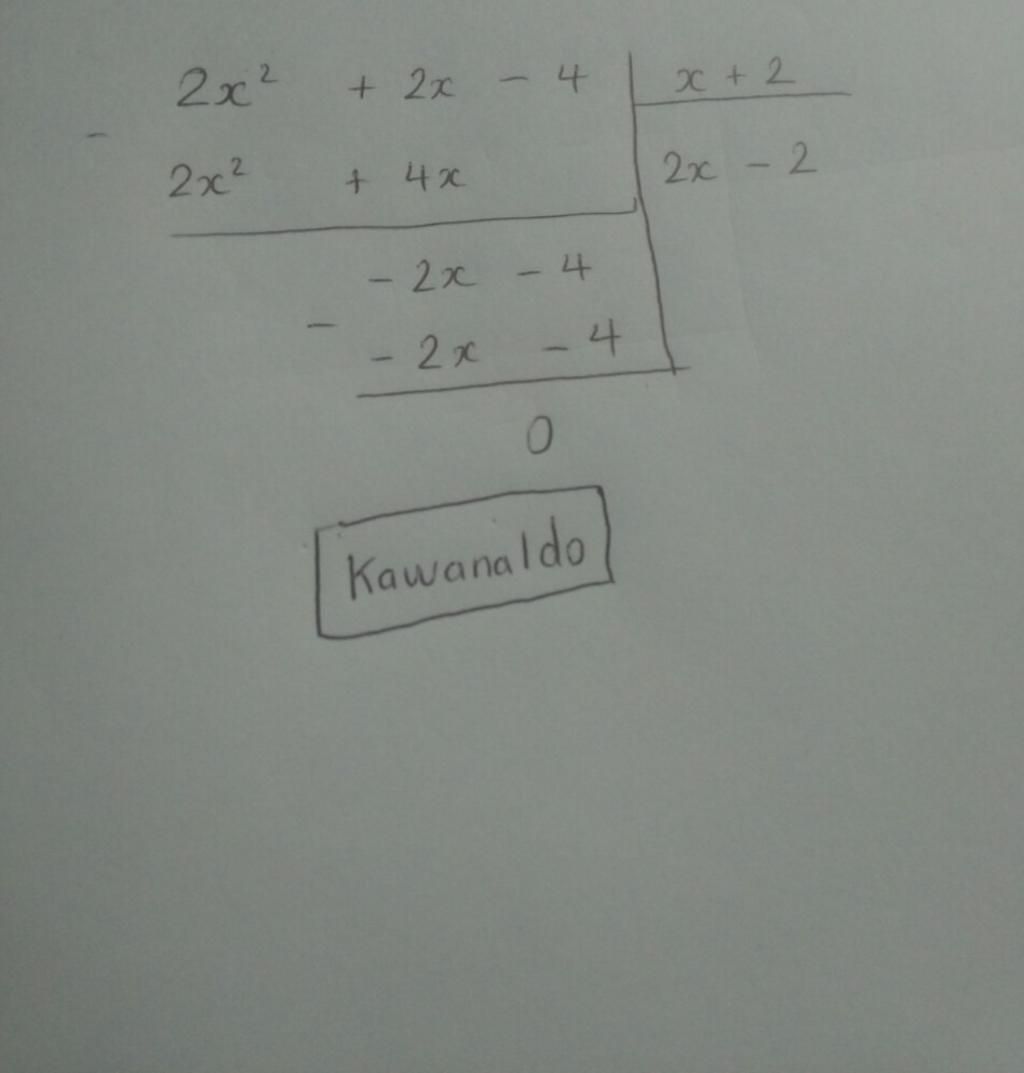 2x² + 2x - 4 | x + 2
-
2x² + 4x | 2x - 2
- 2x - 4
-
- 2x - 4
0
Kawanaldo